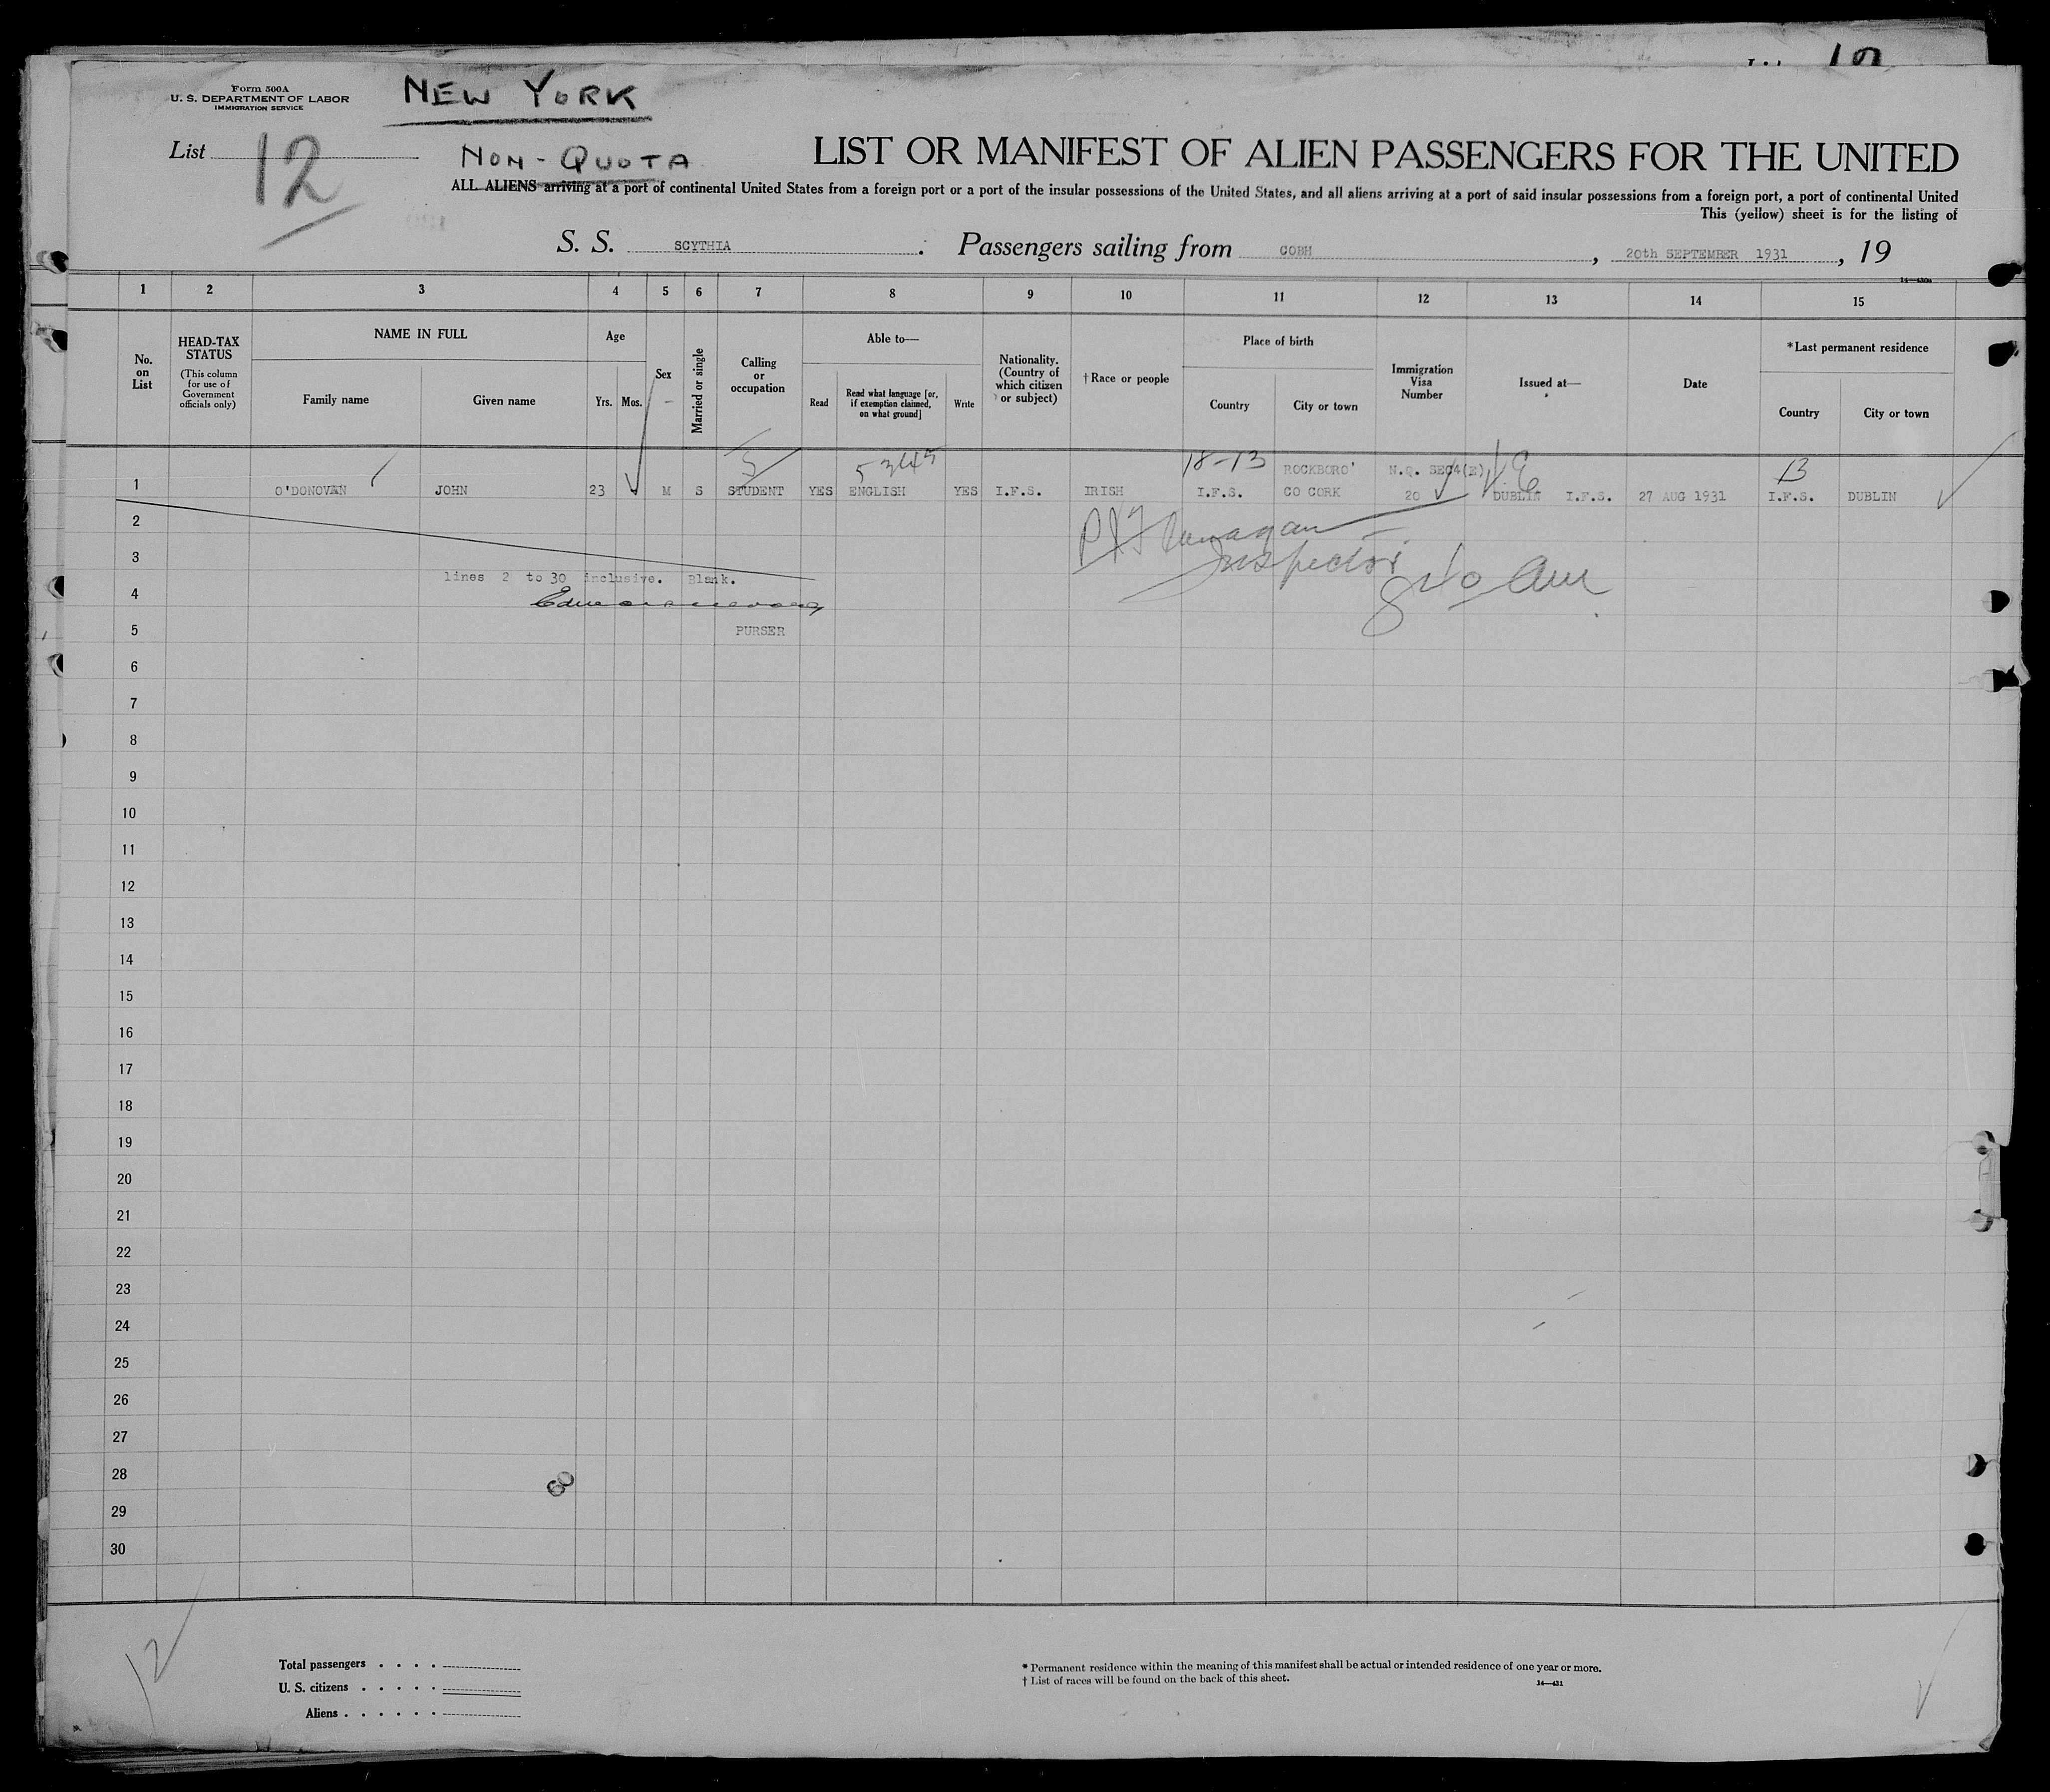 Form 500A
U. S. DEPARTMENT OF LABOR
IMMIGRATION SERVICE
NEW YORK
List 12
NON-QUOTA
LIST OR MANIFEST OF ALIEN PASSENGERS FOR THE UNITED
ALL ALIENS arriving at a port of continental United States from a foreign port or a port of the insular possessions of the United States, and all aliens arriving at a port of said insular possessions from a foreign port, a port of continental United
This (yellow) sheet is for the listing of
S. S. SCYTHIA . Passengers sailing from COBH , 20th SEPTEMBER 1931 , 19
14—430a
1 2 3 4 5 6 7 8 9 10 11 12 13 14 15
No. on List
HEAD-TAX STATUS
(This column for use of Government officials only)
NAME IN FULL
Family name
Given name
Age
Yrs. Mos.
Sex
Married or single
Calling or occupation
Able to—
Read
Read what language [or, if exemption claimed, on what ground]
Write
Nationality. (Country of which citizen or subject)
†Race or people
Place of birth
Country
City or town
Immigration Visa Number
Issued at—
Date
*Last permanent residence
Country
City or town
5 5345 18-13 ROCKBORO' N.Q. SEC4(E) 13
1 O'DONOVAN JOHN 23 M S STUDENT YES ENGLISH YES I.F.S. IRISH I.F.S. CO CORK 20 DUBLIN I.F.S. 27 AUG 1931 I.F.S. DUBLIN
2
Inspector
3
lines 2 to 30 inclusive. Blank.
4
5 PURSER
6
7
8
9
10
11
12
13
14
15
16
17
18
19
20
21
22
23
24
25
26
27
28
29
30
12
Total passengers . . . .
U. S. citizens . . . . .
Aliens . . . . . .
* Permanent residence within the meaning of this manifest shall be actual or intended residence of one year or more.
† List of races will be found on the back of this sheet.
14—431